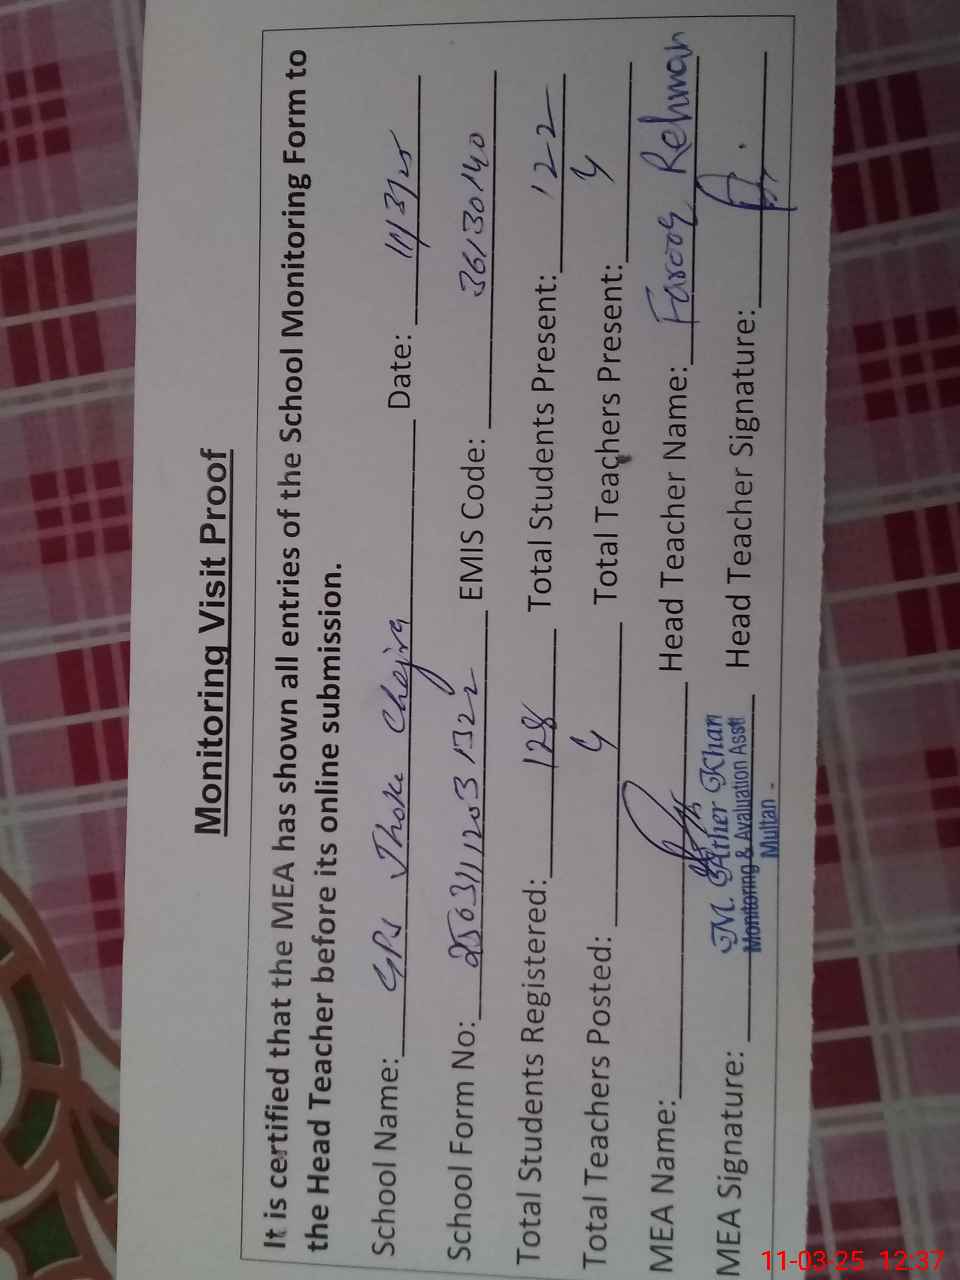 Monitoring Visit Proof
It is certified that the MEA has shown all entries of the School Monitoring Form to
the Head Teacher before its online submission.
School Name: GPS Jhoke Chajra Date: 11/3/25
School Form No: 25031112031322 EMIS Code: 36130140
Total Students Registered: 128 Total Students Present: 122
Total Teachers Posted: 4 Total Teachers Present: 4
MEA Name: Head Teacher Name: Farooq Rehman
M. Ather Khan
MEA Signature: Monitoring & Avaluation Asstt Head Teacher Signature:
Multan
11-03-25 12:37